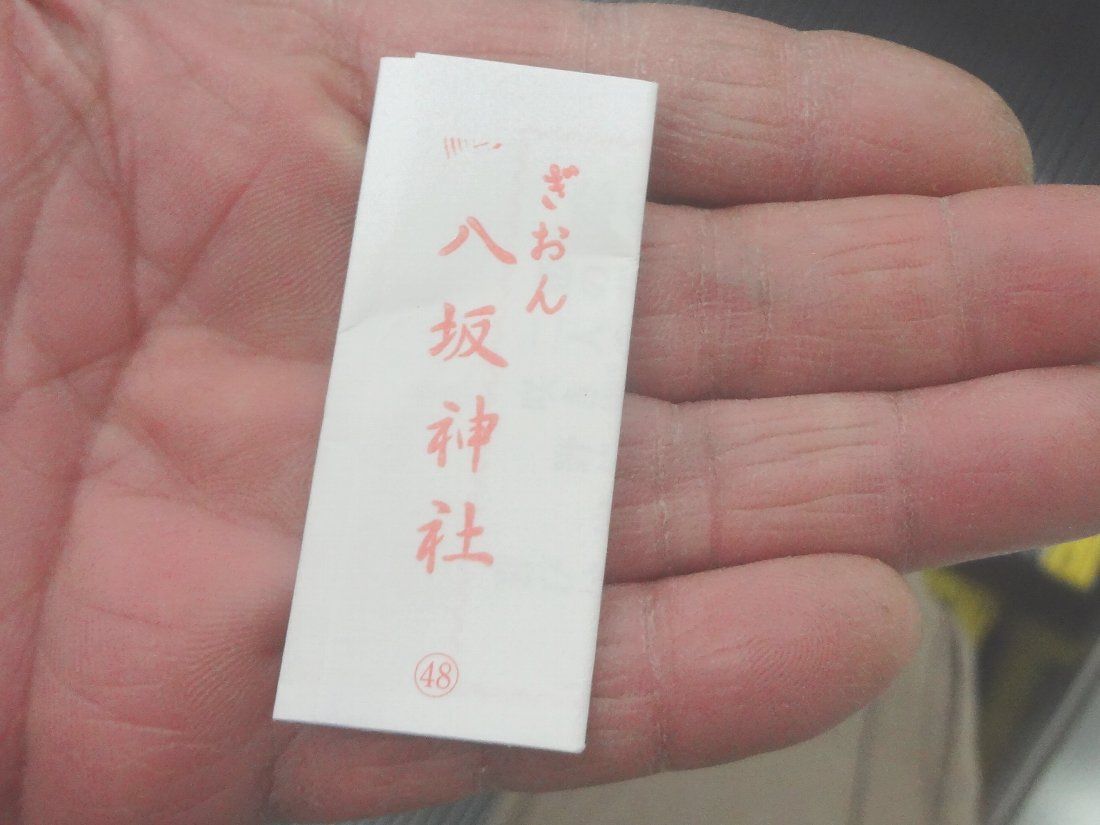 ぎおん
八坂神社
㊽